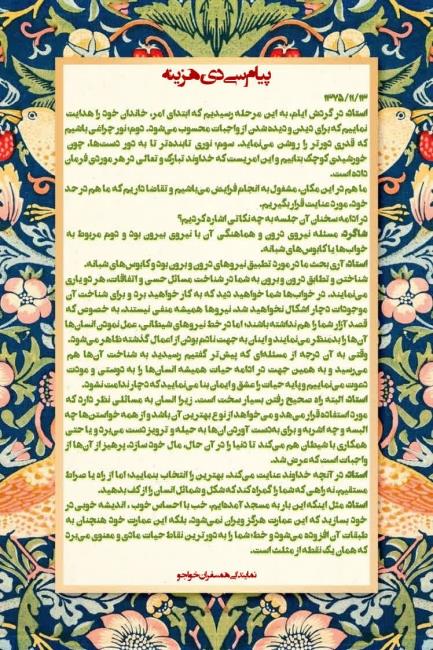 پیام سی دی هزینه
۱۳۷۵/۱۱/۱۳
استاد: در گردش ایام، به این مرحله رسیدیم که ابتدای امر، خاندان خود را هدایت
نماییم که برای دیدن و دیده شدن از واجبات محسوب می‌شود. دوم؛ نور چراغی باشیم
که قدری دورتر را روشن می‌نماید. سوم؛ نوری تابنده‌تر تا به دور دست‌ها، چون
خورشیدی کوچک بتابیم و این امریست که خداوند تبارک و تعالی در هر موردی فرمان
داده است.
ما هم در این مکان، مشغول به انجام فرایض می‌باشیم و تقاضا داریم که ما هم در حد
خود، مورد عنایت قرار بگیریم.
در ادامه سخنان آن جلسه به چه نکاتی اشاره کردیم؟
شاگرد: مسئله نیروی درون و هماهنگی آن با نیروی بیرون بود و دوم مربوط به
خواب‌ها یا کابوس‌های شبانه.
استاد: آری بحث ما در مورد تطبیق نیروهای درون و برون بود و کابوس‌های شبانه.
شناختن و تطابق درون و برون به شما در شناخت مسائل حسی و اتفاقات، هر دو یاری
می‌نمایند. در خواب‌ها شما خواهید دید که به کار خواهید برد و برای شناخت آن
موجودات دچار اشکال نخواهید شد، نیروها همیشه منفی نیستند، به خصوص که
قصد آزار شما را هم نداشته باشند؛ اما در خط نیروهای شیطانی، عمل نمودن انسان‌ها
آن‌ها را بدمنظر می‌نمایند و اینان به جهت نادم بودن از اعمال گذشته ظاهر می‌شود.
وقتی به آن درجه از مسئله‌ای که پیش‌تر گفتیم رسیدید به شناخت آن‌ها هم
می‌رسید و به همین جهت در ادامه حیات همیشه انسان‌ها را به دوستی و مودت
دعوت می‌نماییم و پایه حیات را عشق و ایمان بنا می‌نمایید که دچار ندامت نشود.
استاد: البته راه صحیح رفتن بسیار سخت است. زیرا انسان به مسائلی نظر دارد که
مورد استفاده قرار می‌دهد و می‌خواهد از نوع بهترین آن باشد و از همه خواستن‌ها چه
البسه و چه اشربه و برای به‌دست آوردن آن‌ها به حیله و تزویر دست می‌برد و یا حتی
همکاری با شیطان هم می‌کند تا دنیا را در آن حال، مال خود سازد. پرهیز از آن‌ها از
واجبات است که عرض شد.
استاد: در آنچه خداوند عنایت می‌کند، بهترین را انتخاب بنمایید؛ اما از راه یا صراط
مستقیم، نه راهی که شما را گمراه کند که شکل و شمائل انسان را از کف بدهید.
استاد: مثل اینکه این بار به مسجد آمده‌ایم، خب با احساس خوب ، اندیشه خوبی در
خود بسازید که این عمارت هرگز ویران نمی‌شود، بلکه این عمارت خود همچنان به
طبقات آن افزوده می‌شود و خط؛ شما را به دورترین نقاط حیات مادی و معنوی می‌برد
که همان یک نقطه از مثلث است.
نمایندگی همسفران خواجو